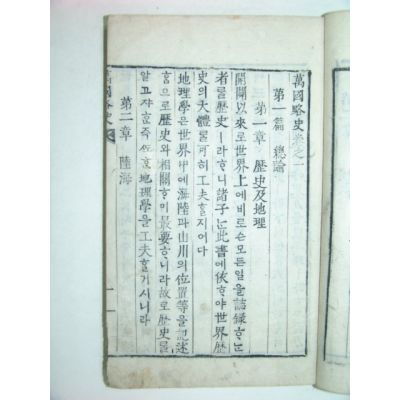 萬國略史卷之一
第一篇 總論
第一章 歷史及地理
開闢以來로世界上에비로손모든일을誌錄ᄒᆞᆫ
者를歷史ㅣ라ᄒᆞᄂᆞ니諸子ᄂᆞᆫ此書에依ᄒᆞ야世界歷
史의大體를可히工夫ᄒᆞᆯ지어다
地理學은世界中에海陸과山川의位置等을記述
ᄒᆞᆷ으로歷史와相關ᄒᆞᆷ이最要ᄒᆞ니라故로歷史를
알고쟈ᄒᆞᆫ즉ᄯᅩᄒᆞᆫ地理學을工夫ᄒᆞᆯ거시니라
第二章 陸海
萬國略史
一